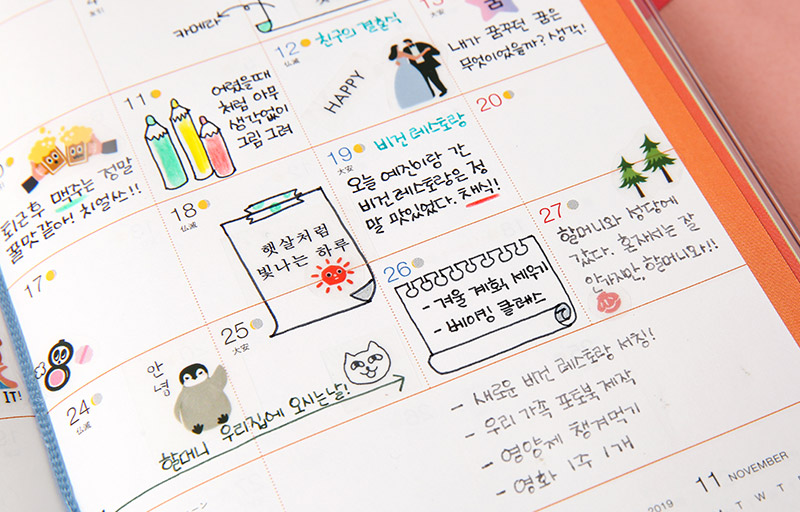 카메라
12
仏滅
친구의 결혼식
HAPPY
13
大安
내가 꿈꾸던 꿈은
무엇이었을까? 생각!
퇴근후 맥주는 정말
꿀맛같아! 치얼쓰!!
11
어렸을때
처럼 아무
생각없이
그림 그려
18
仏滅
햇살처럼
빛나는 하루
19
大安
비건 레스토랑
오늘 예진이랑 간
비건 레스토랑은 정
말 맛있었다. 채식!
20
17
24
仏滅
안
녕
25
大安
할머니 우리집에 오시는날!
26
- 겨울 계획 세우기
- 베이킹 클래스
27
할머니와 성당에
갔다. 혼자서는 잘
안가지만, 할머니와!!
- 새로운 비건 레스토랑 서칭!
- 우리 가족 포토북 제작
- 영양제 챙겨먹기
- 영화 1주 1개
IT!
2019
11 NOVEMBER
T W T